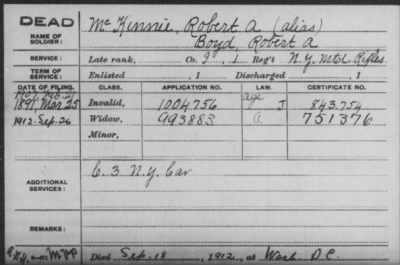 DEAD
NAME OF SOLDIER:
McKinnie, Robert A (alias)
Boyd, Robert A
SERVICE:
Late rank, Co. I, 1 Reg't N.Y. Mtd Rifles
TERM OF SERVICE:
Enlisted , 1 Discharged , 1
DATE OF FILING. CLASS. APPLICATION NO. LAW. CERTIFICATE NO.
1907, Feb. 21 age
1891 Mar 25 Invalid, 1004756 J 843.754
1912-Sep. 26 Widow, 993883 a 751376
Minor,
ADDITIONAL SERVICES:
C. 3 N.Y. Cav
REMARKS:
Died Sep. 18, 1912, at Wash D.C.